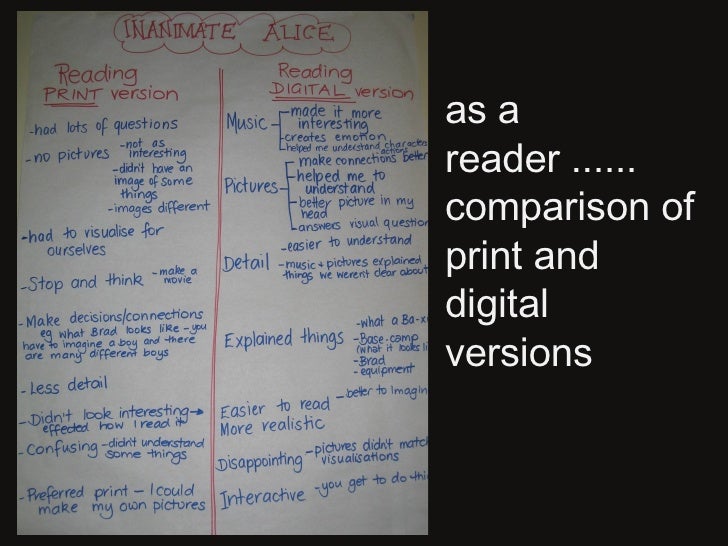 INANIMATE ALICE
Reading
PRINT version
-had lots of questions
-no pictures -not as
interesting
-didn't have an
image of some
things
-images different
-had to visualise for
ourselves
-Stop and think -make a
movie
-Make decisions/connections
eg what Brad looks like -you
have to imagine a boy and there
are many different boys
-Less detail
-Didn't look interesting→
effected how I read it
-Confusing -didn't understand
some things
-Preferred print - I could
make my own pictures
Reading
DIGITAL version
Music
-made it more
interesting
-creates emotion
-helped me understand
-actions
Pictures
-make connections better
-helped me to
understand
-better picture in my
head
-answers visual
Detail
-easier to understand
-music+pictures explained
things we werent clear about
Explained things
-what a
-Base-camp
(what it looks
-Brad
-equipment
Easier to read -better to
More realistic
Disappointing -pictures didn't
visualisations
Interactive -you get to do
as a
reader ......
comparison of
print and
digital
versions